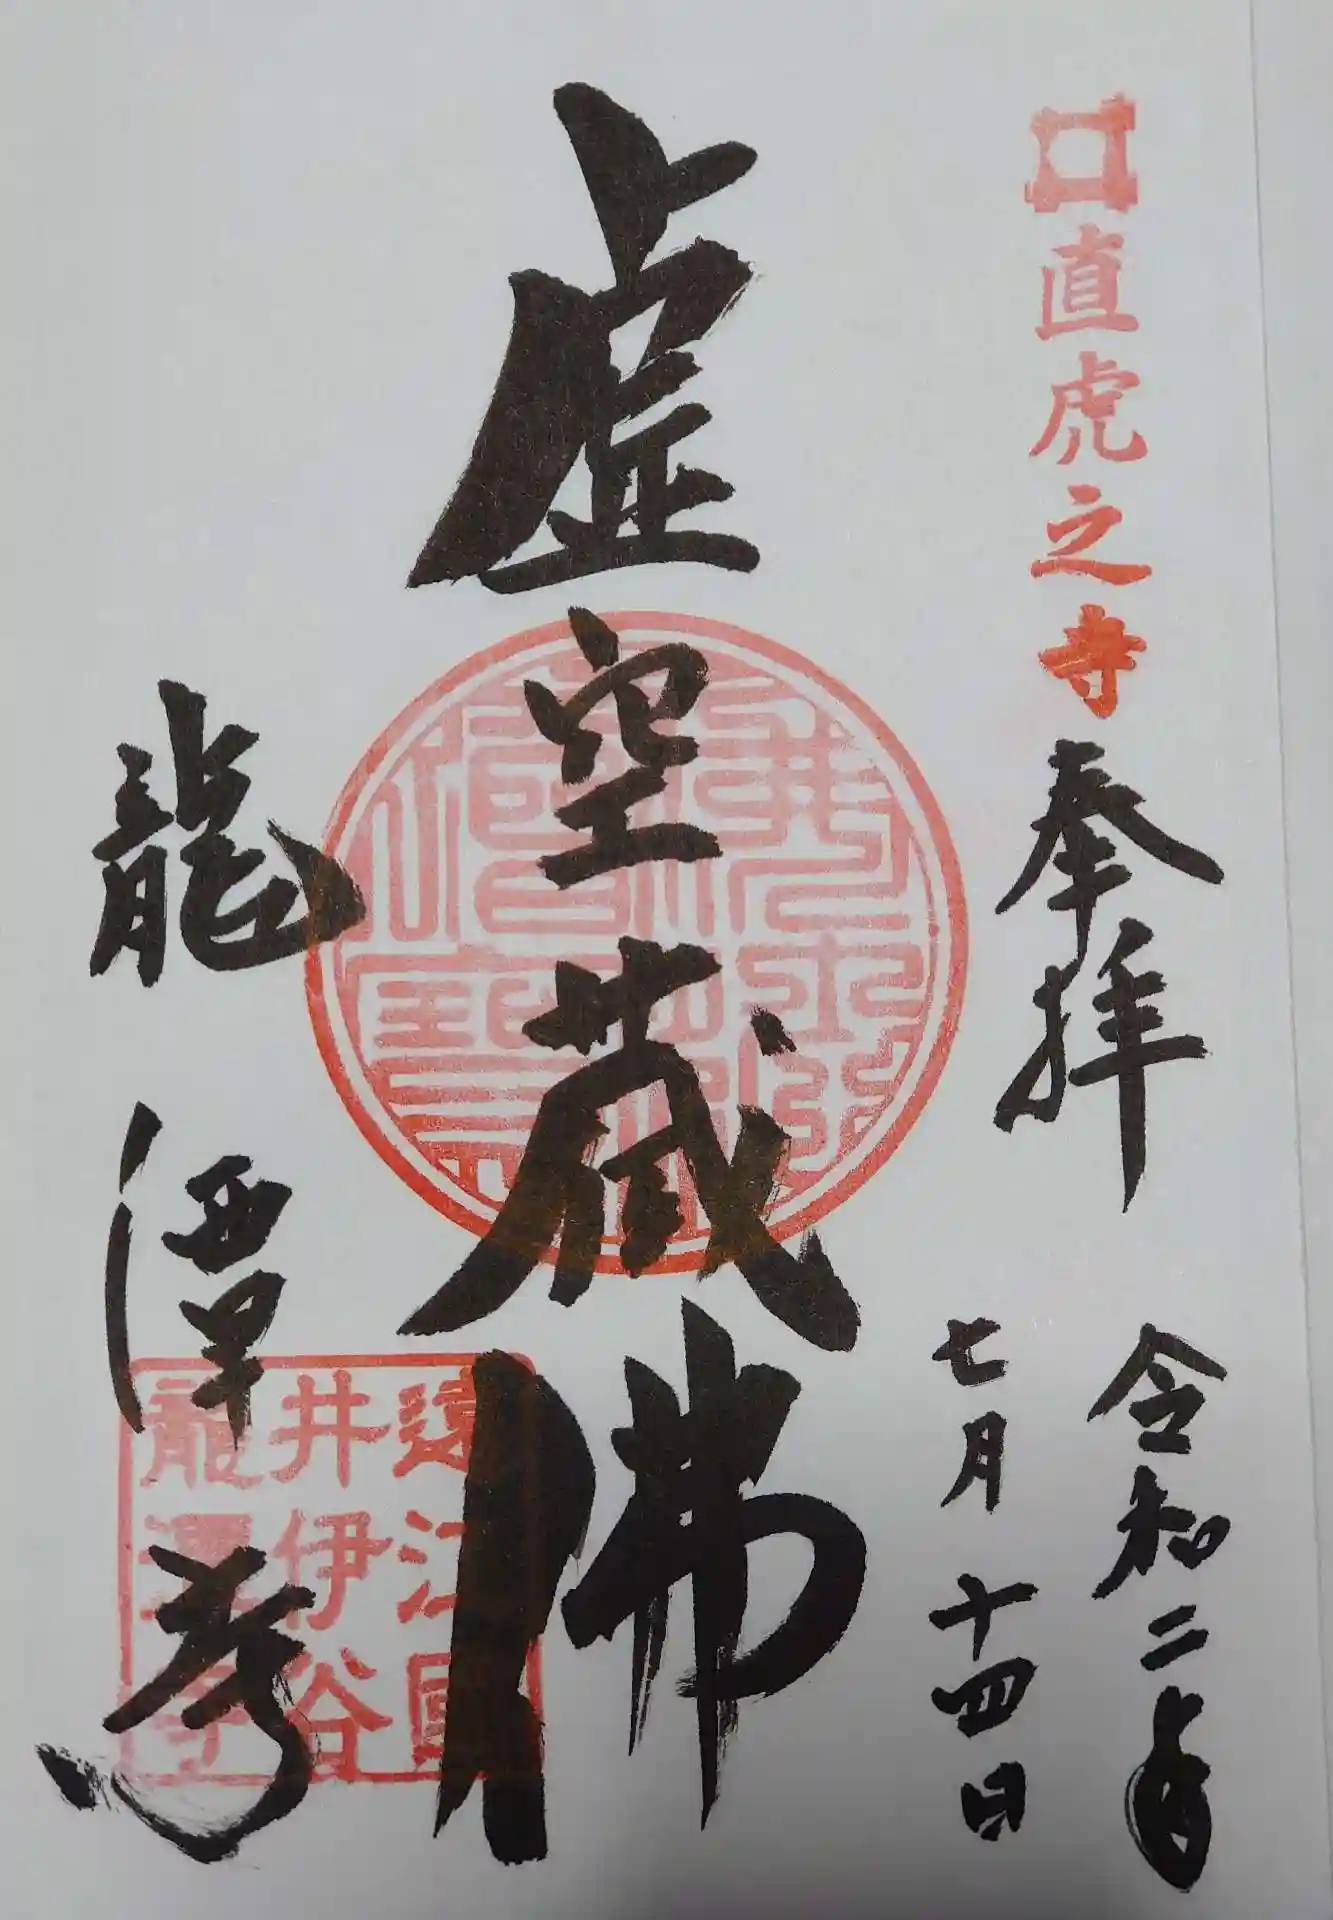 直虎之寺
奉拝
令和二年
七月十四日
虚空蔵佛
佛法僧寶
龍潭寺
遠江國
井伊谷
龍潭寺